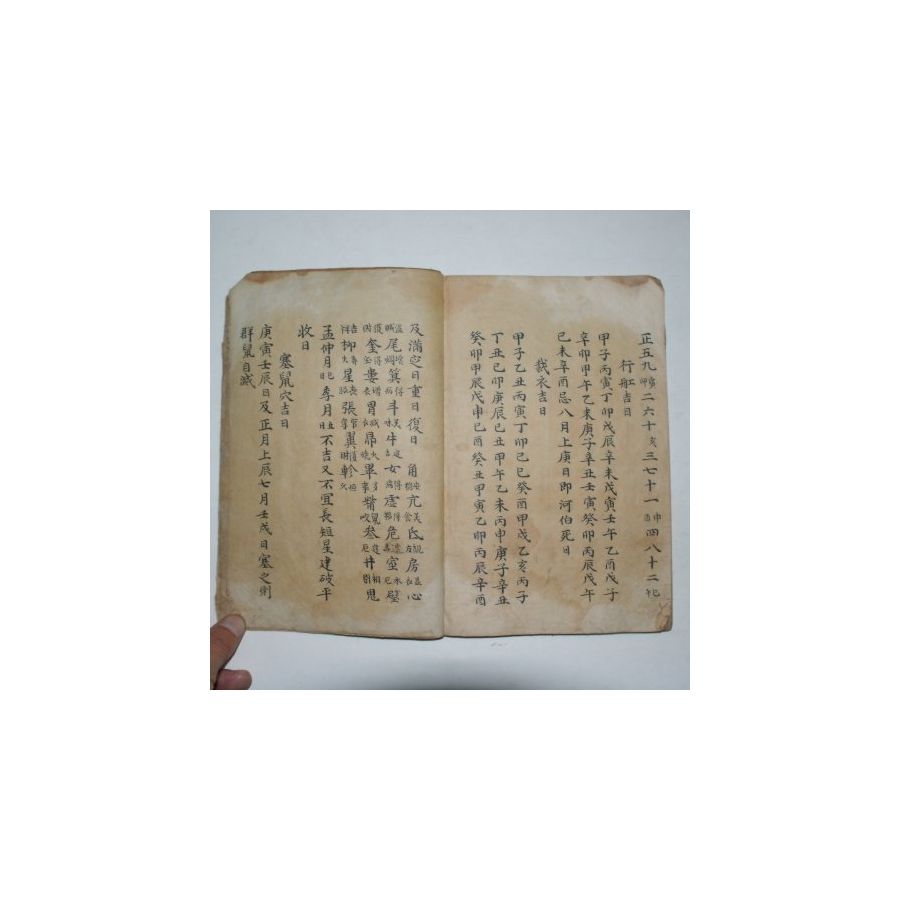 正五九寅卯二六十亥三七十一申酉四八十二巳午
行舡吉日
甲子丙寅丁卯戊辰辛未戊寅壬午乙酉戊子
辛卯甲午乙未庚子辛丑壬寅癸卯丙辰戊午
己未辛酉忌八月上庚日即河伯死日
裁衣吉日
甲子乙丑丙寅丁卯己巳癸酉甲戌乙亥丙子
丁丑己卯庚辰己丑甲午乙未丙申庚子辛丑
癸卯甲辰戊申己酉癸丑甲寅乙卯丙辰辛酉
及滿定日重日復日 角亢氐房心
尾箕斗牛女虛危室壁
奎婁胃昴畢觜參井鬼
柳星張翼軫
孟仲月巳季月丑日不吉又不宜長短星建破平
收日
塞鼠穴吉日
庚寅壬辰日及正月上辰七月壬戌日塞之則
群鼠自滅